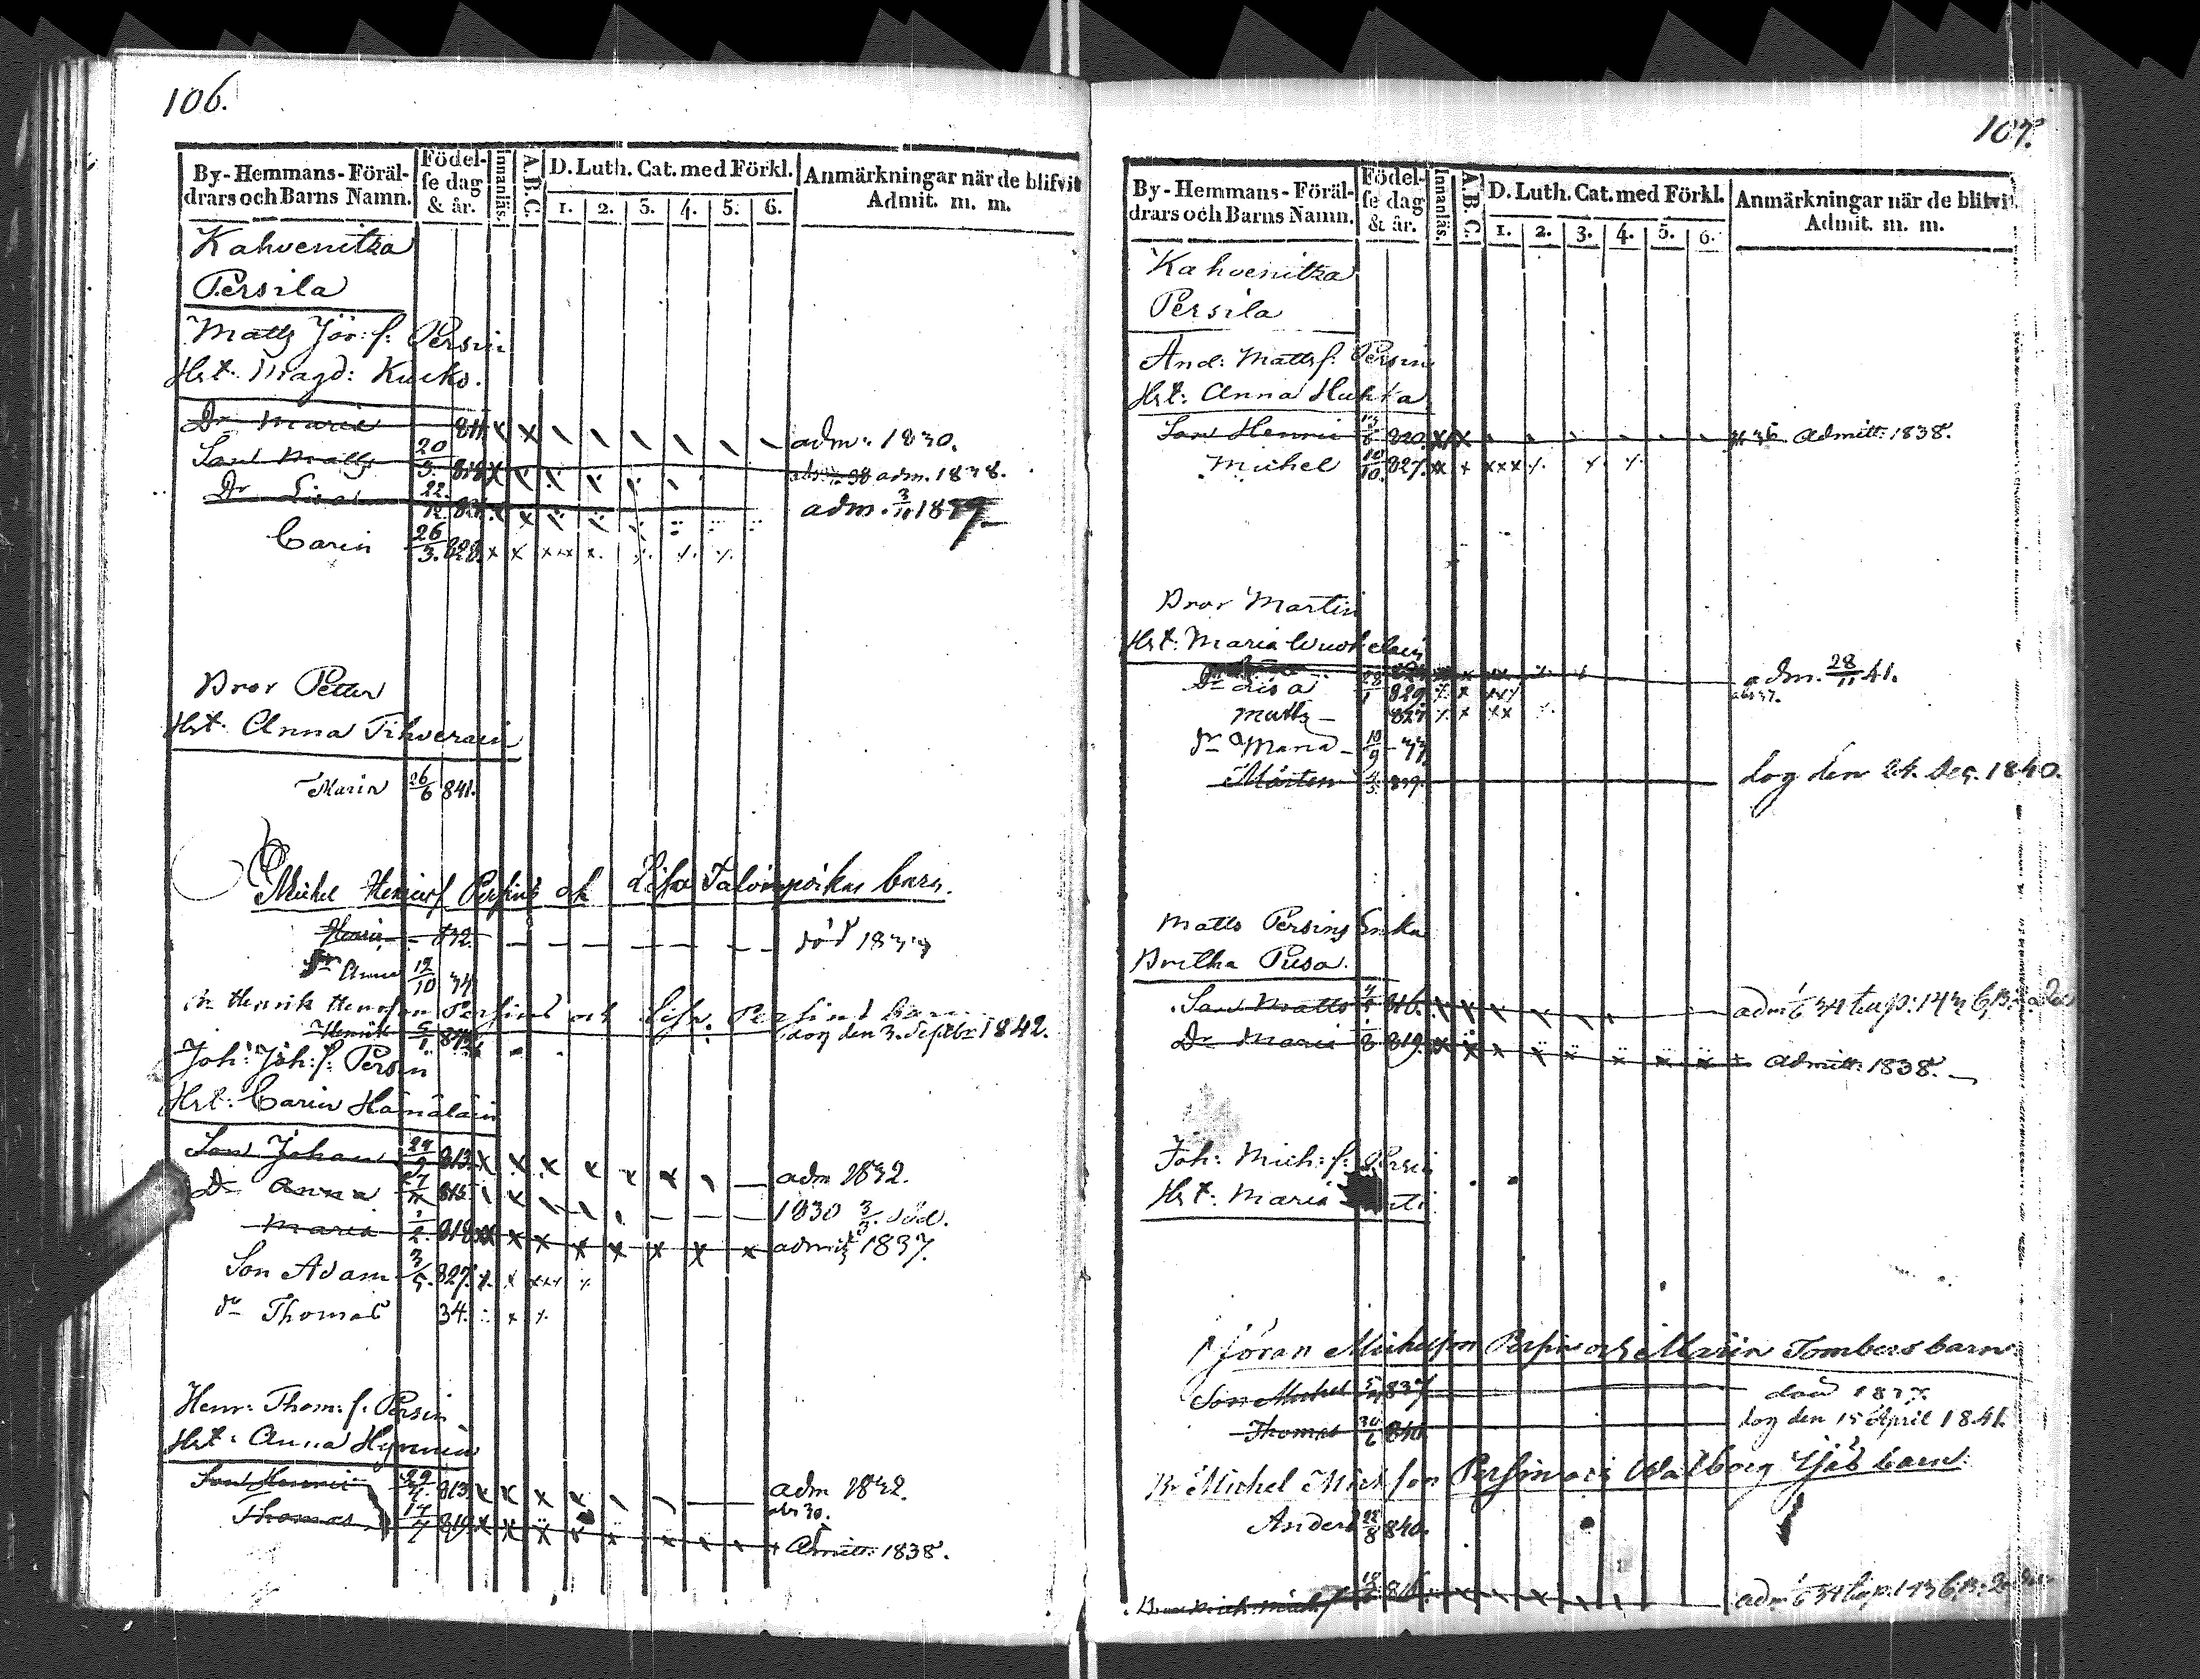 106.
By-Hemmans-Föräl-
drars och Barns Namn.
Födel-
se dag
& år.
Innanläs.
A.B.C.
D. Luth. Cat. med Förkl.
1. 2. 3. 4. 5. 6.
Anmärkningar när de blifvit
Admit. m. m.
Kahvenitza
Persila
Matts Jör: s: Persin
Hst. Magd: Kucko.
Dr Maria 811. adm: 1830.
Son Matts 20/3. 818 adm. 1838.
Dr Lisa 22. adm. 3/11 1839.
Carin 26/3. 828.
Bror Petter
Hst. Anna Tihverain
Maria 26/6 841.
Michel Henrics Persins och Lisa Talonpoikas barn.
Henric 832. död 1833
Dr Anna 12/10 34
Br Henrik Henrsson Persins och Lisa Persins barn
Henrik dog den 3. Septbr 1842.
Joh: Joh: s: Persin
Hst: Carin Hämäläin
Son Johan 24/9 813. adm 1832.
Dr Anna 815. 1830 3/3. död.
Maria 1/2. 818 admit 1837.
Son Adam 3/5. 827.
dr Thomas 34.
Henr: Thom: s: Persin
Hst: Anna Hynnin
Son Henric 29/7. 813 adm 1832.
abs 30.
Thomas 17/7 819 Admitt: 1838.
107.
By-Hemmans-Föräl-
drars och Barns Namn.
Födel-
se dag
& år.
Innanläs.
A.B.C.
D. Luth. Cat. med Förkl.
1. 2. 3. 4. 5. 6.
Anmärkningar när de blifvit
Admit. m. m.
Kahvenitza
Persila
And: Matts s: Persin
Hst: Anna Huhta
Son Henric 820. Admitt: 1838.
Michel 10/10. 827.
Bror Martin
Hst: Maria
adm. 28/11 41.
Dr Lisa 28/1 829. abs 37.
Matts 827
Dr Maria 10/9 - 33
Mårten 839. dog den 24. Dec. 1840.
Matts Persins Enka
Bretha Pusa.
Son Matts 816.
Dr Maria 819. Admitt: 1838.
Joh: Mich: s: Persin
Hst: Maria
Jöran Michelsson Persins och Maria Tombers barn
Son Michel 837 död 1837.
Thomas 30/6 840 dog den 15 April 1841.
Br Michel Michsson Persins och Walborg Sjös barn.
Anders 22/8 840.